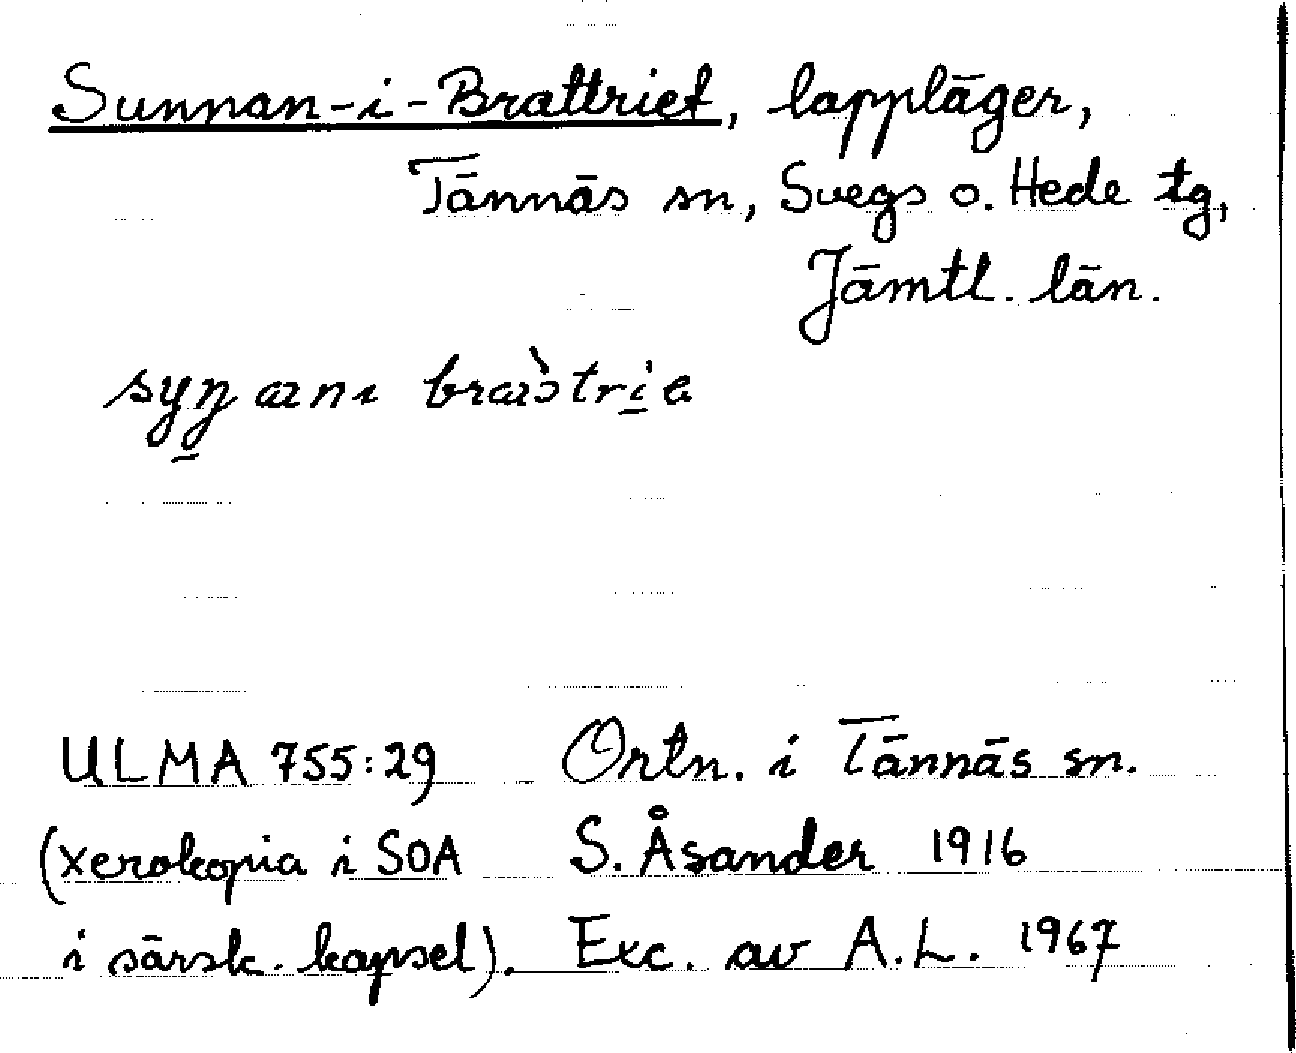 Sunnan-i-Brattriet, lappläger,
Tännäs sn, Svegs o. Hede tg,
Jämtl. län.
ULMA 755:29 Ortn. i Tännäs sn.
(xerokopia i SOA S. Åsander 1916
i särsk. kapsel). Exc. av A.L. 1967